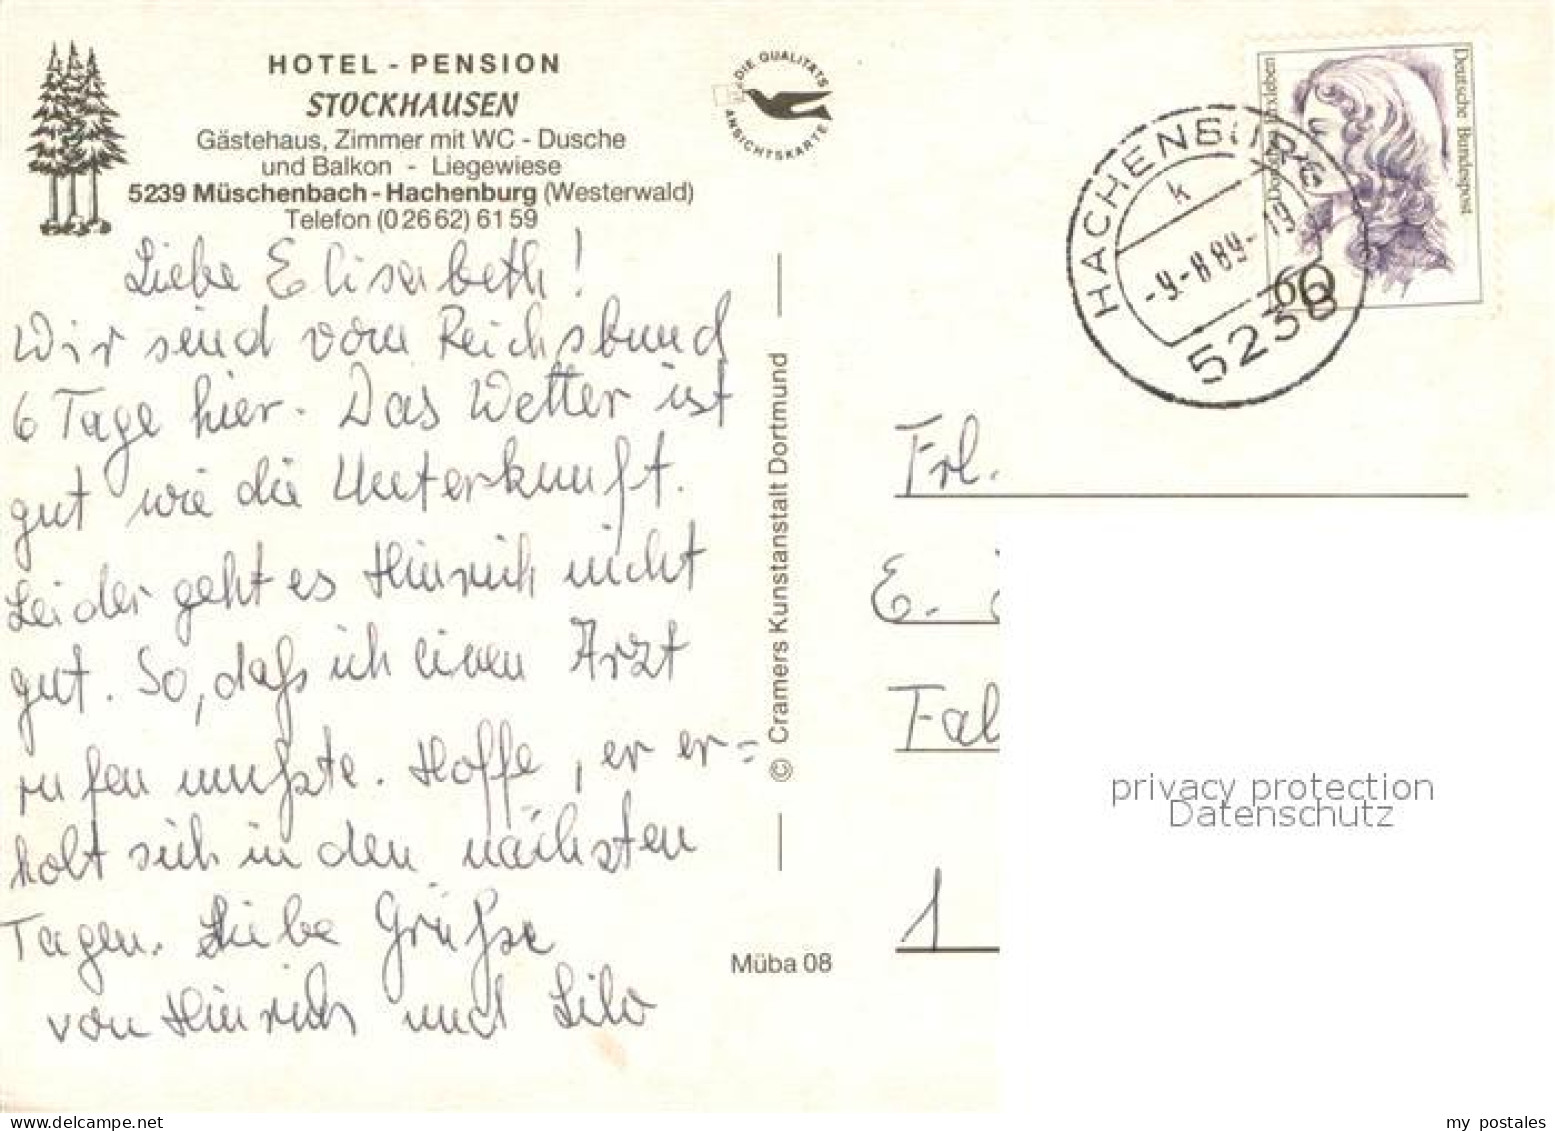 HOTEL - PENSION
STOCKHAUSEN
Gästehaus, Zimmer mit WC - Dusche
und Balkon - Liegewiese
5239 Müschenbach - Hachenburg (Westerwald)
Telefon (0 26 62) 61 59
DIE QUALITÄTS
ANSICHTSKARTE
Liebe Elisabeth!
Wir sind vom Reichsbund
6 Tage hier. Das Wetter ist
gut wie die Unterkunft.
Leider geht es Hinrich nicht
gut. So, daß ich einen Arzt
rufen mußte. Hoffe, er er=
holt sich in den nächsten
Tagen. Liebe Grüße
von Hinrich und Lilo
© Cramers Kunstanstalt Dortmund
Müba 08
HACHENBURG
k
-9.-8.89-19
5238
Deutsche Bundespost
Dorothea Erxleben
60
Frl.
E.
Fal
1
privacy protection
Datenschutz
my postales